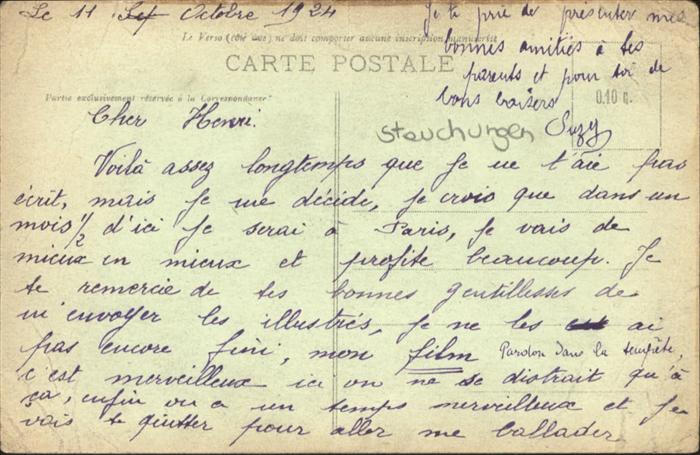 Le 11 Octobre 1924
Je te prie de présenter mes
bonnes amitiés à tes
parents et pour toi de
bons baisers
Suzy
Le Verso (côté vue) ne doit comporter aucune inscription manuscrite
CARTE POSTALE
Partie exclusivement réservée à la Correspondance
0.10 g.
stauchungen
Cher Henri.
Voilà assez longtemps que je ne t'aie pas
écrit, mais je me décide, je crois que dans un
mois 1/2 d'ici je serai à Paris, je vais de
mieux en mieux et profite beaucoup. Je
te remercie de tes bonnes gentillesses de
m'envoyer les illustrés, je ne les ai
pas encore fini, mon film Pardon dans la tempête,
c'est merveilleux ici on ne se distrait qu'à
ça, enfin on a un temps merveilleux et je
vais te quitter pour aller me ballader